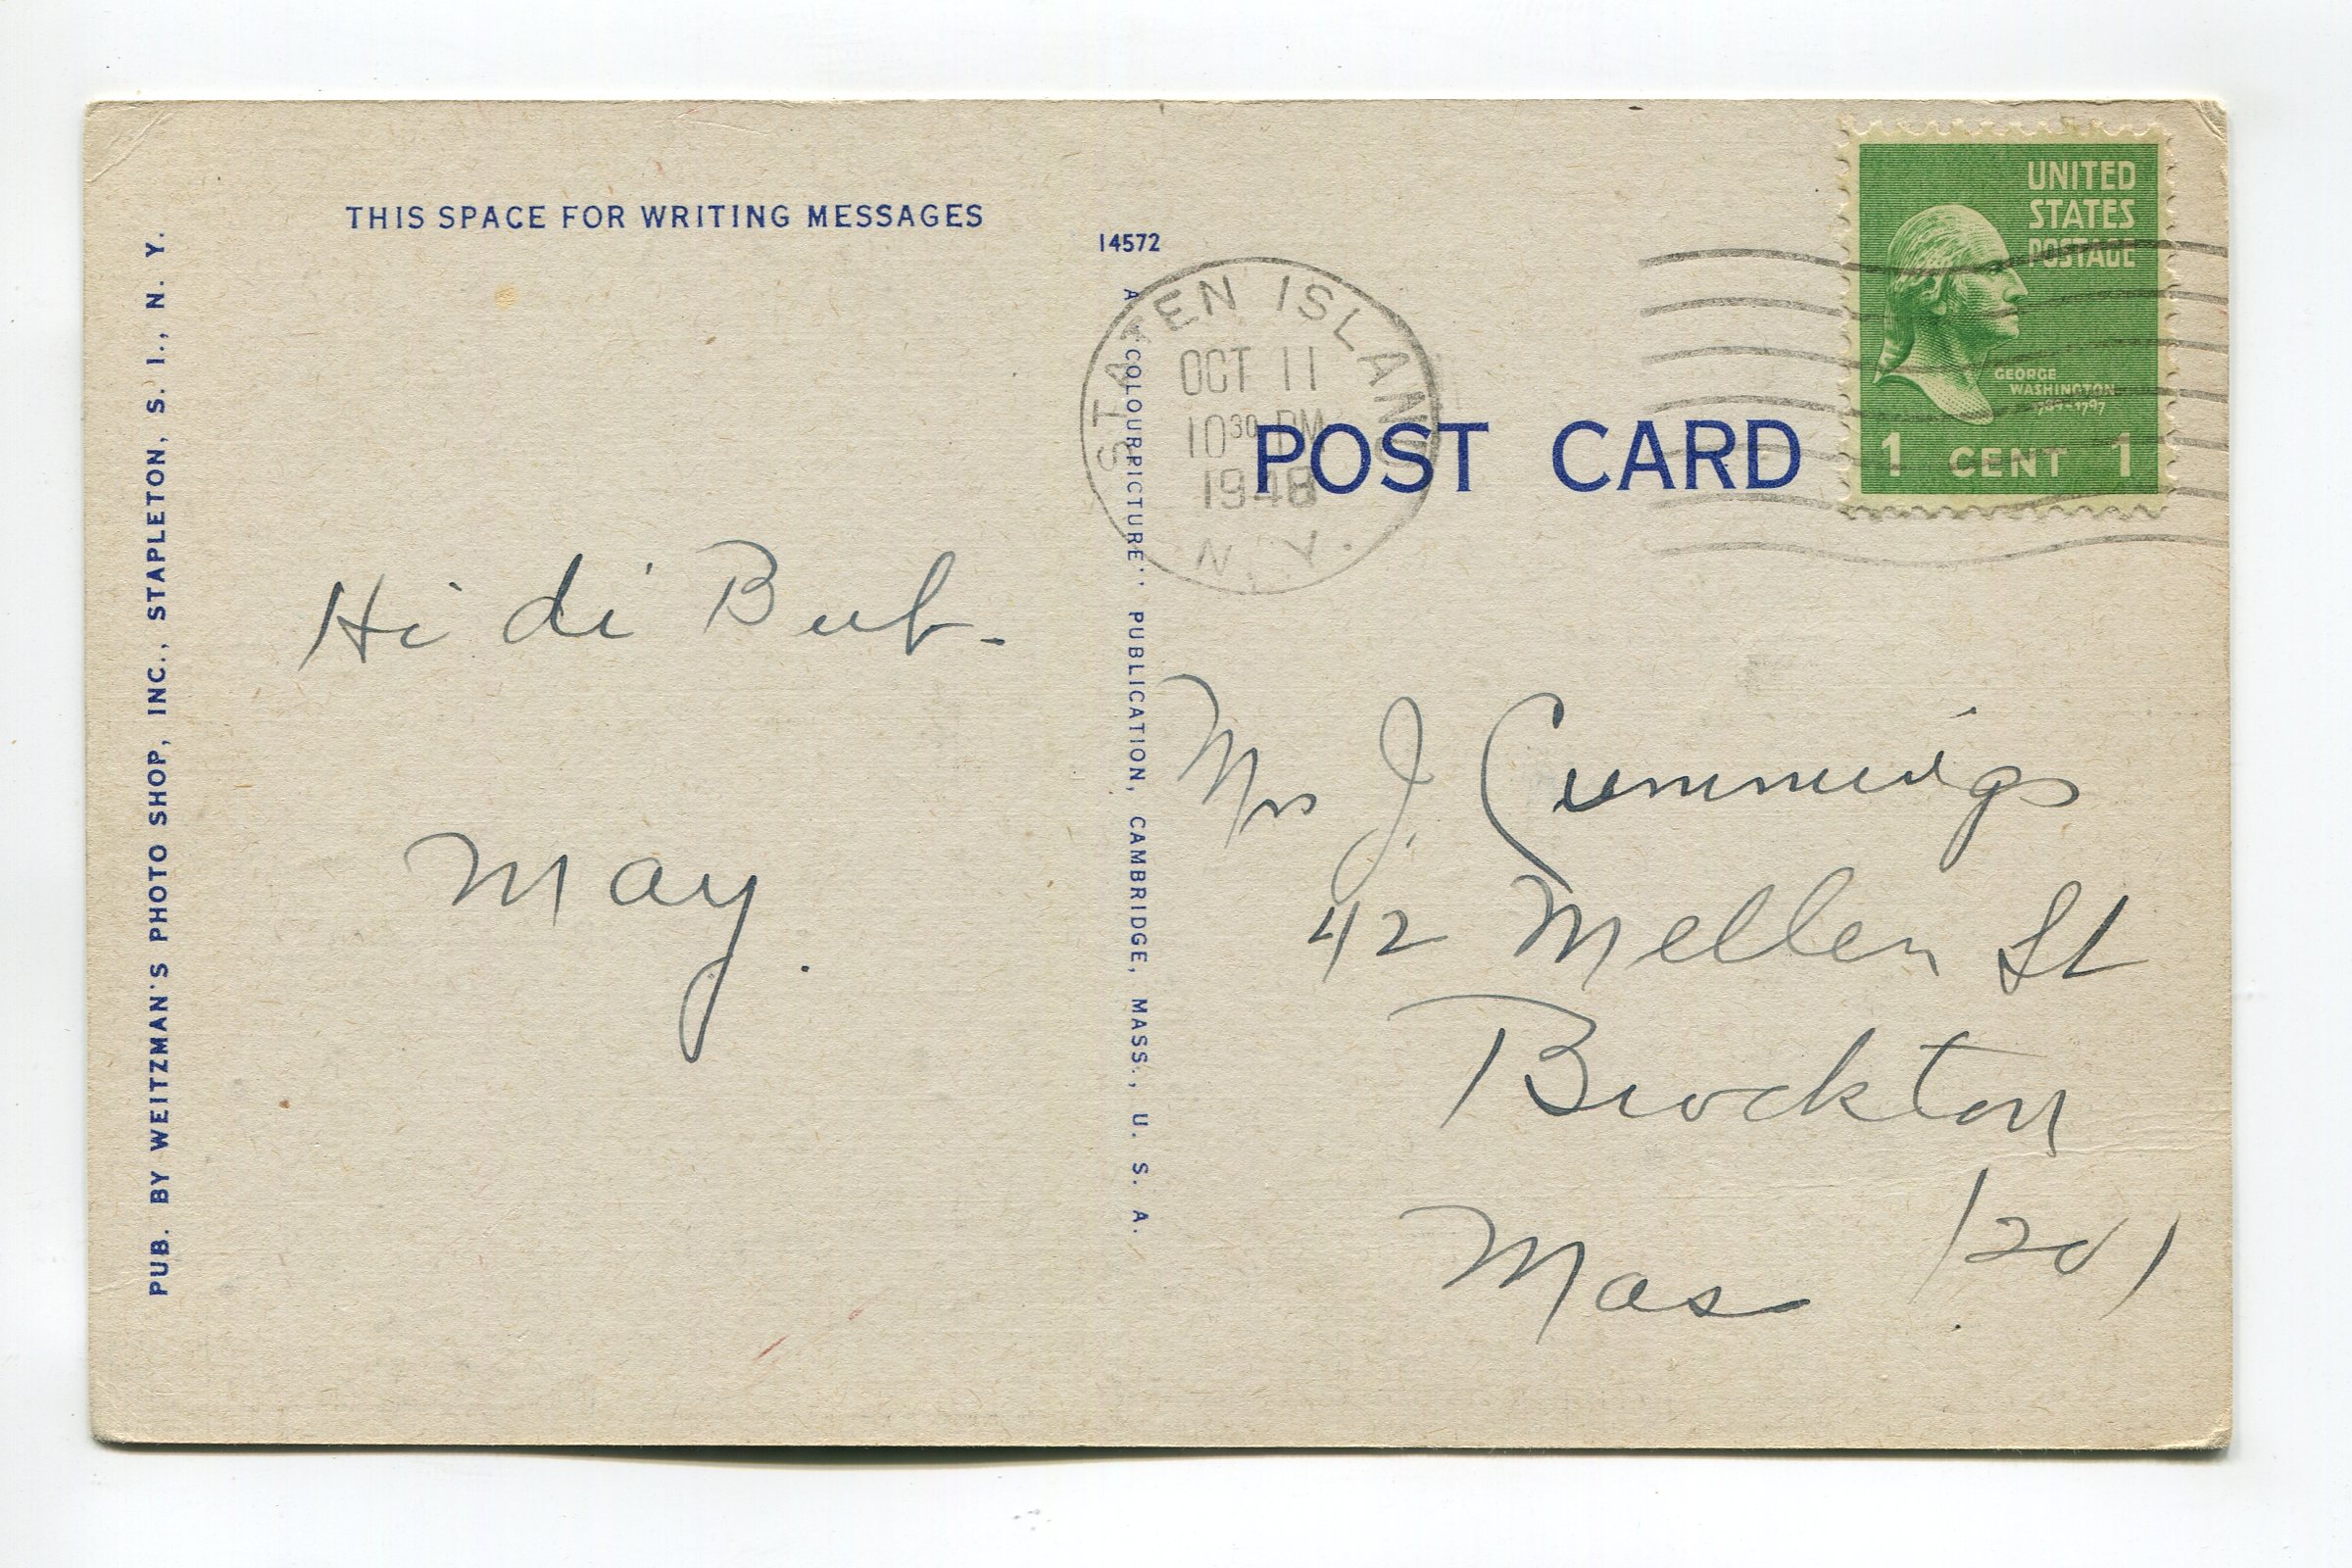 THIS SPACE FOR WRITING MESSAGES
PUB. BY WEITZMAN'S PHOTO SHOP, INC., STAPLETON, S. I., N. Y.
Hi di Bub-
May.
14572
A "COLOURPICTURE" PUBLICATION, CAMBRIDGE, MASS., U. S. A.
STATEN ISLAND
OCT 11
10 30 PM
1948
N.Y.
POST CARD
UNITED
STATES
POSTAGE
GEORGE
WASHINGTON
1789-1797
1 CENT 1
Mrs J. Cummings
42 Mellen St
Brockton
Mas